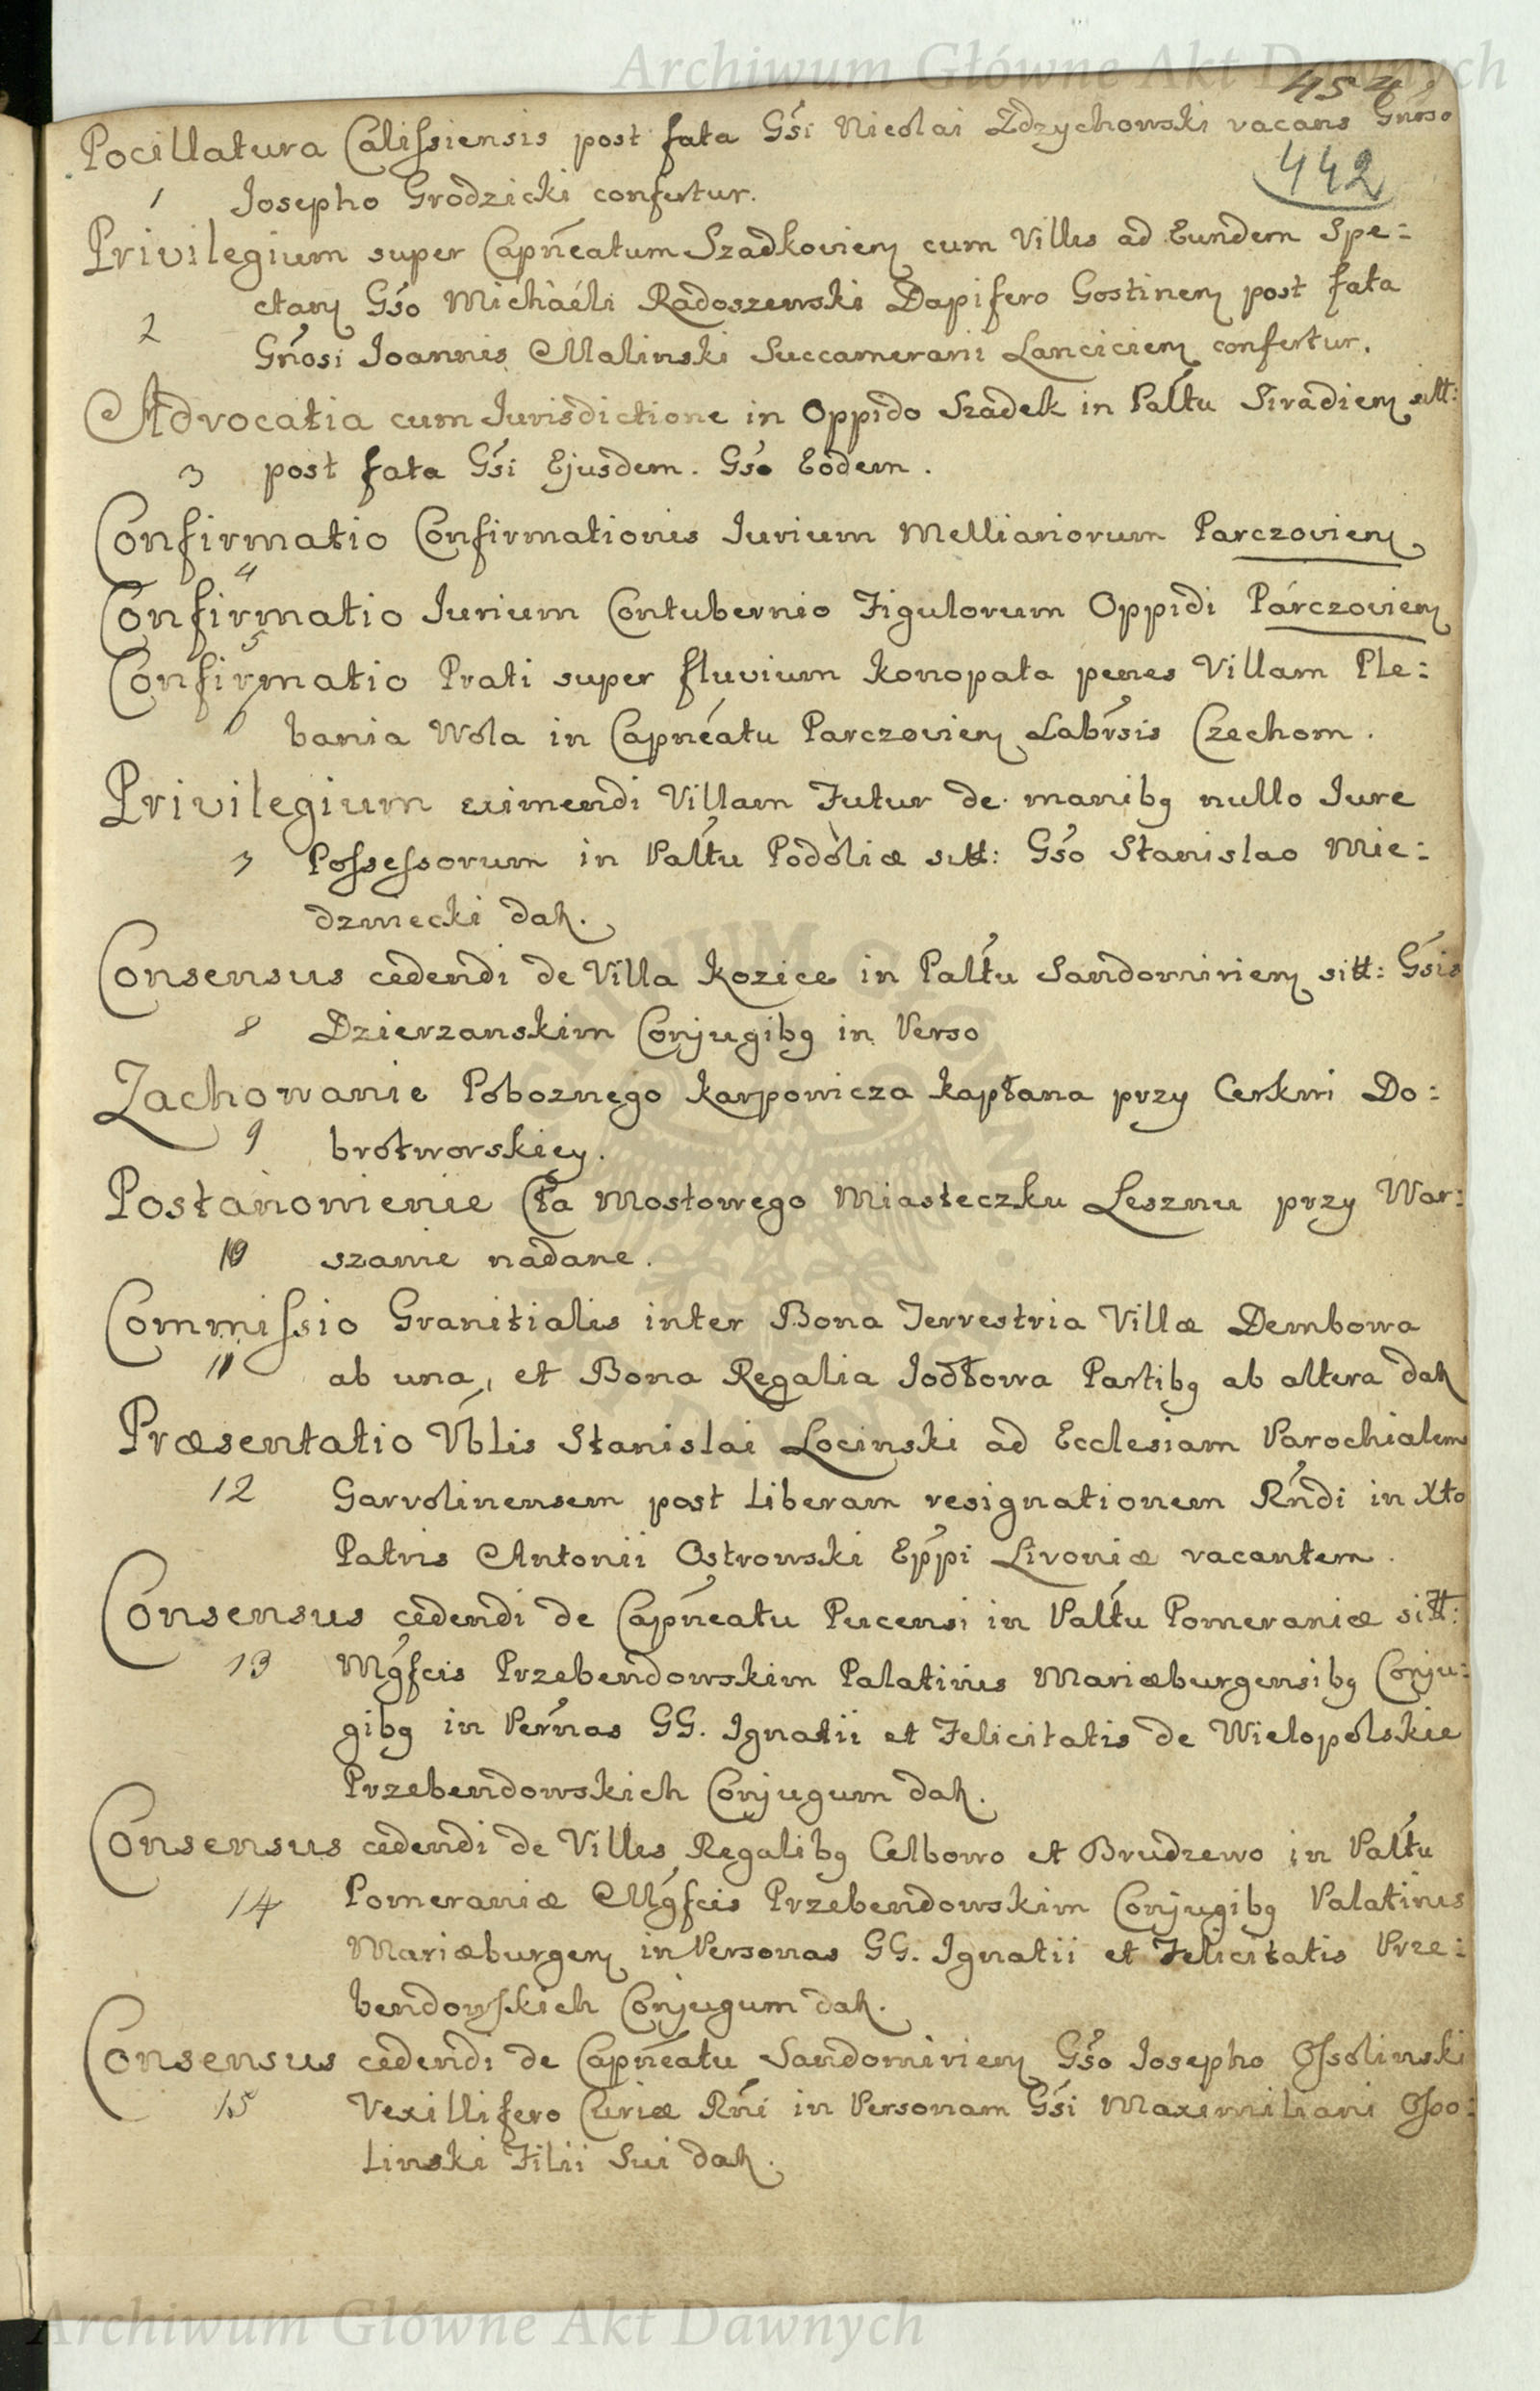 Archiwum Główne Akt Dawnych
454
Pocillatura Calissiensis post fata Gsi Nicolai Zdzychowski vacans Gnoso
442
1 Josepho Grodzicki confertur.
Privilegium super Capneatum Szadkovien cum Villis ad Eundem Spe:
ctan Gso Michaéli Radoszewski Dapifero Gostinen post fata
2 Gnosi Joannis Malinski Succamerarii Lancicien confertur.
Advocatia cum Jurisdictione in Oppido Szadek in Paltu Siradien sitt:
3 post fata Gsi Ejusdem. Gso Eodem.
Confirmatio Confirmationis Jurium Melliariorum Parczovien
4
Confirmatio Jurium Contubernio Figulorum Oppidi Parczovien
5
Confirmatio Prati super fluvium Konopata penes Villam Ple:
6 bania Wola in Capneatu Parczovien Labrsis Czechom.
Privilegium eximendi Villam Futur de manibg nullo Jure
7 Possessorum in Paltu Podoliæ sitt: Gso Stanislao Mie:
dzwiecki dat.
Consensus cedendi de Villa Kozice in Paltu Sandomirien sitt: Gsis
8 Dzierzanskim Conjugibg in Verso
Zachowanie Poboznego Karpowicza Kapłana przy Cerkwi Do:
9 brotworskiey.
Postanowienie Cła Mostowego Miasteczku Lesznu przy War:
10 szawie nadane.
Commissio Granitialis inter Bona Terrestria Villæ Dembowa
11 ab una, et Bona Regalia Jodłowa Partibg ab altera dat
Præsentatio Vblis Stanislai Locinski ad Ecclesiam Parochialem
12 Garvolinensem post Liberam resignationem Rndi in Xto
Patris Antonii Ostrowski Eppi Livoniæ vacantem.
Consensus cedendi de Capneatu Pucensi in Paltu Pomeraniæ sitt:
13 Mgfcis Przebendowskim Palatinis Mariæburgensibg Conju:
gibg in Pernas GG. Ignatii et Felicitatis de Wielopolskie
Przebendowskich Conjugum dat.
Consensus cedendi de Villis Regalibg Celbowo et Brudzewo in Paltu
14 Pomeraniæ Mgfcis Przebendowskim Conjugibg Palatinis
Mariæburgen in Personas GG. Ignatii et Felicitatis Prze:
bendowskich Conjugum dat.
Consensus cedendi de Capneatu Sandomirien Gso Josepho Ossolinski
15 Vexillifero Curiæ Rni in Personam Gsi Maximiliani Osso:
linski Filii Sui dat.
Archiwum Główne Akt Dawnych